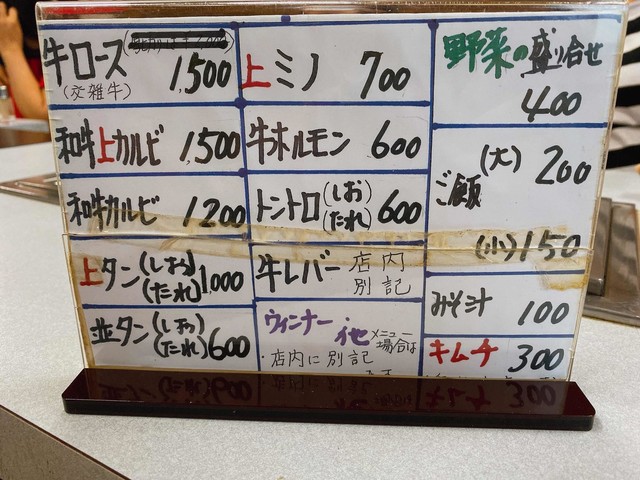 牛ロース
(交雑牛)
1,500
和牛上カルビ 1,500
和牛カルビ 1200
上タン(しお)(たれ) 1,000
並タン(しお)(たれ) 600
上ミノ 700
牛ホルモン 600
トントロ(しお)(たれ) 600
牛レバー 店内
別記
ウィンナー・他 メニュー
場合は
・店内に別記
野菜の盛り合せ
400
ご飯 (大) 200
(小) 150
みそ汁 100
キムチ 300